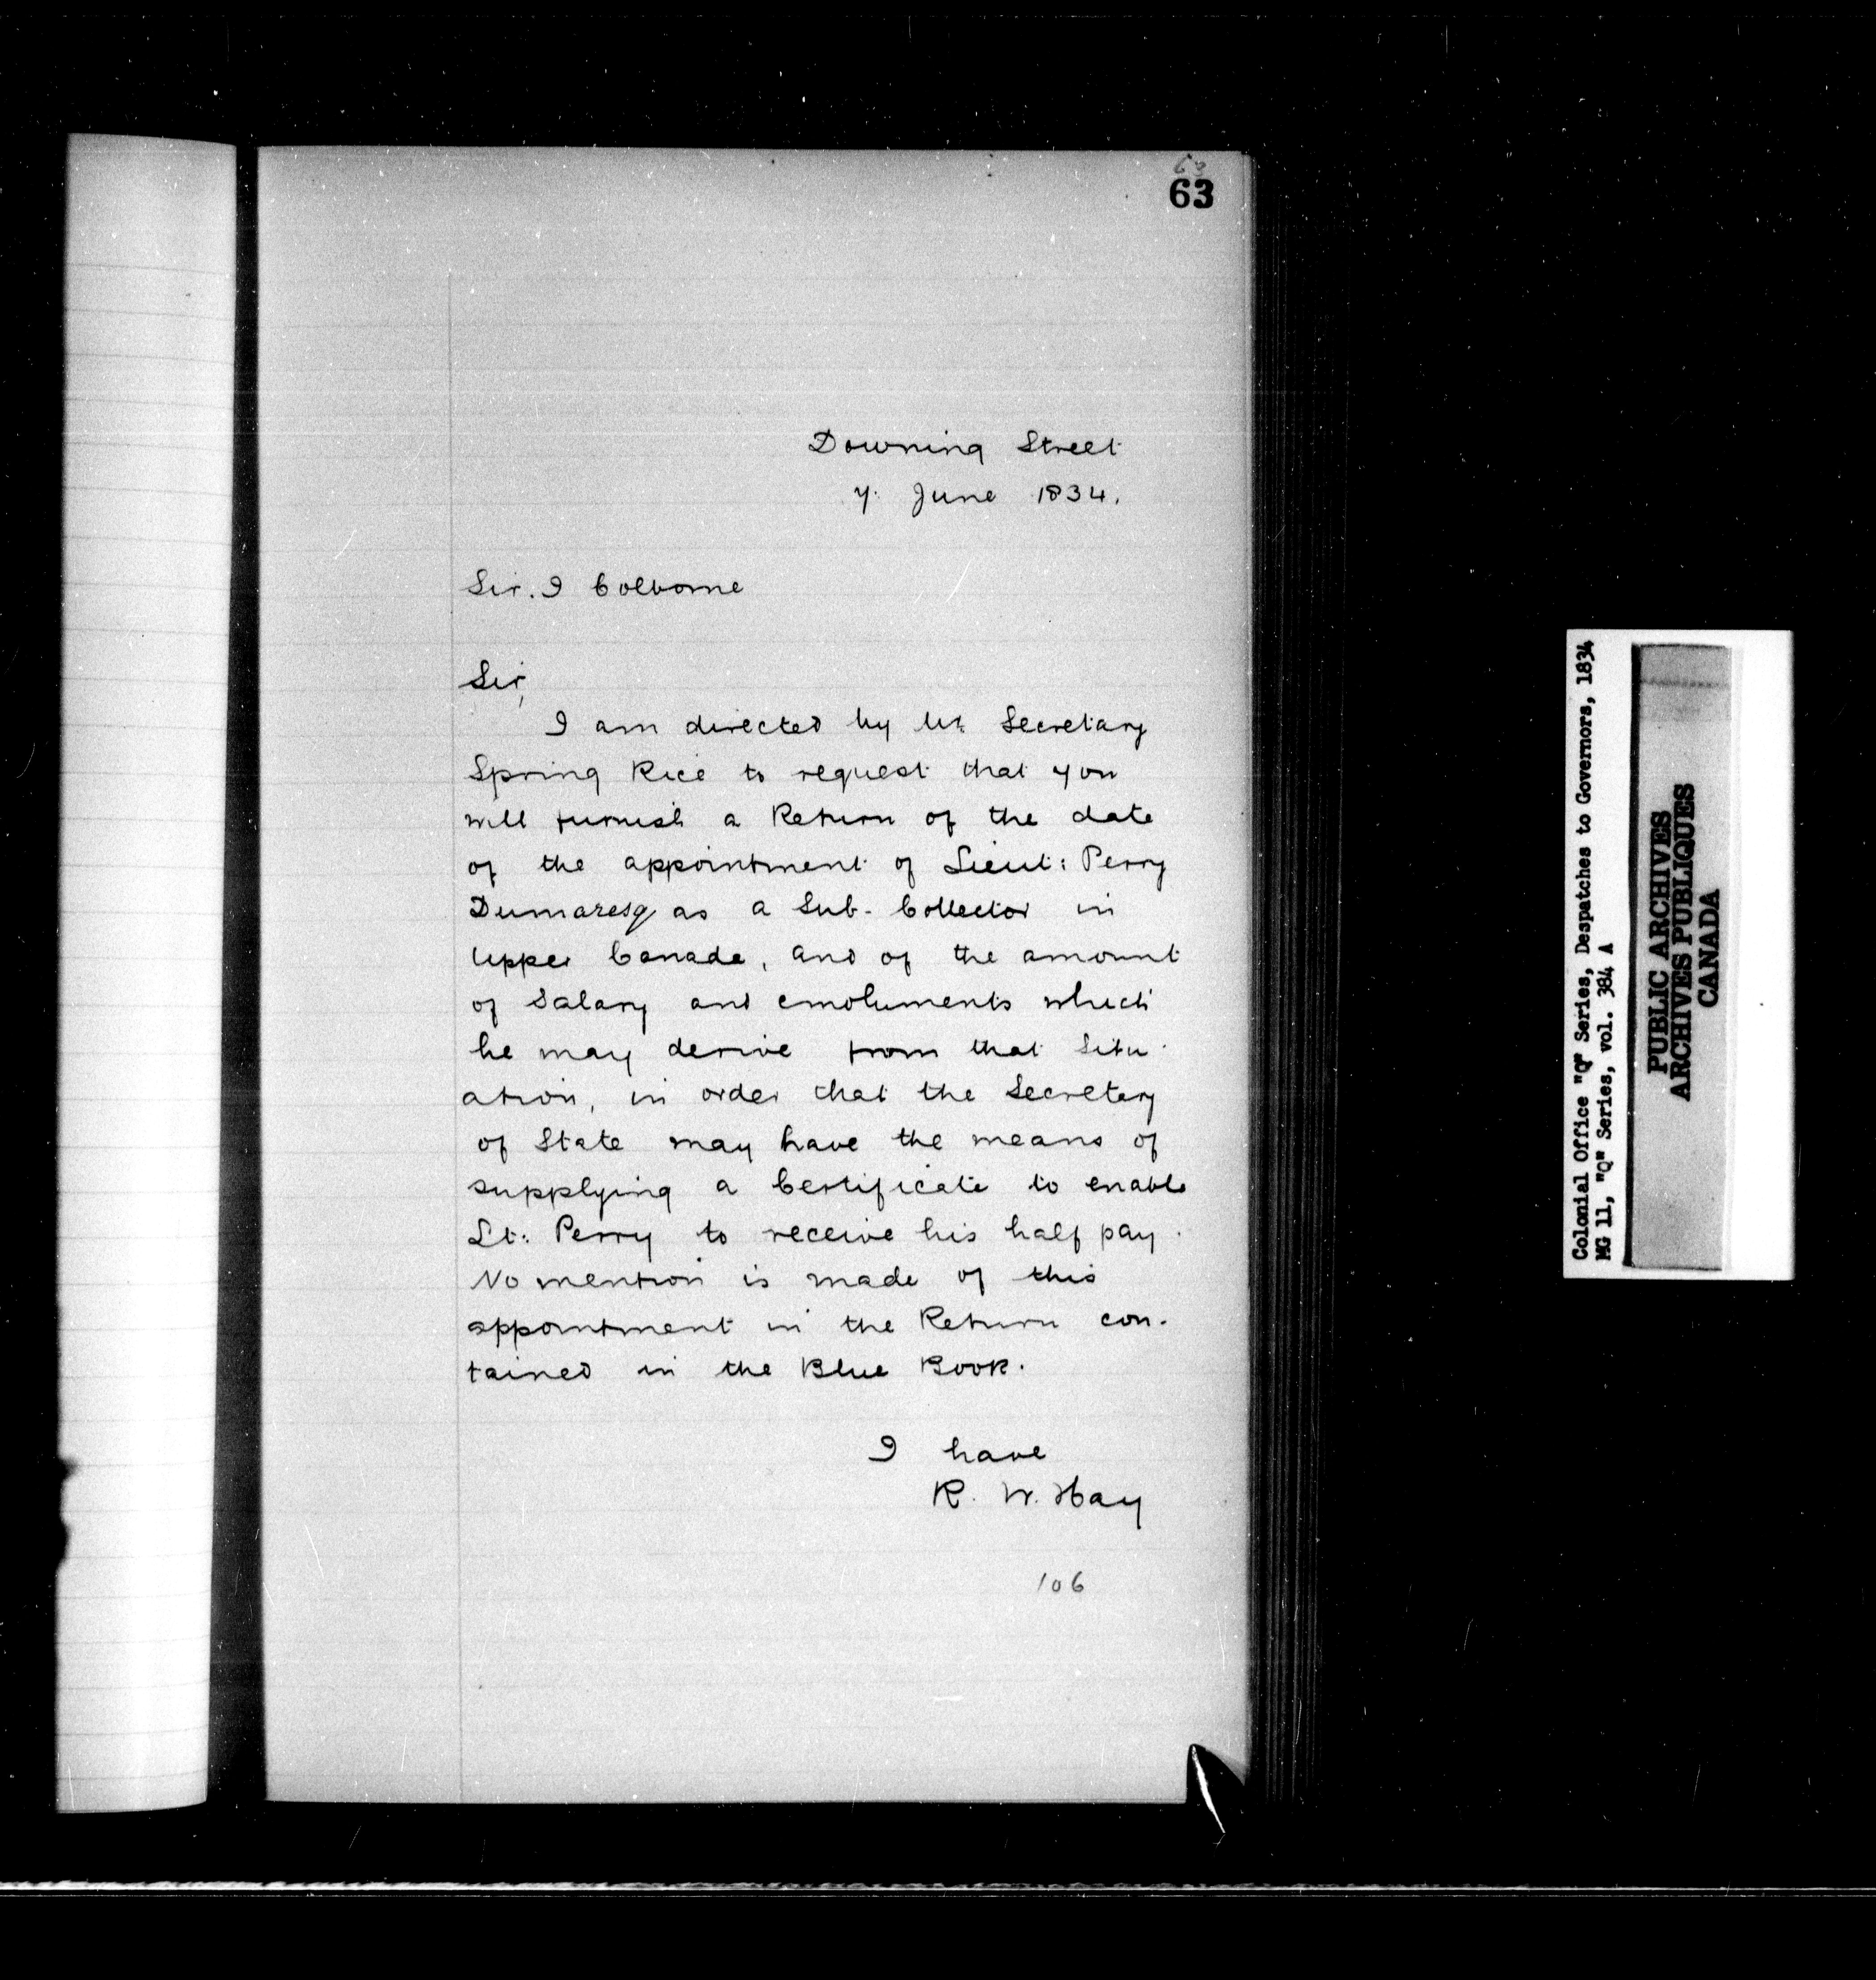 63
63
Downing Street
7. June 1834.
Sir. J Colborne
Sir,
I am directed by Mr. Secretary
Spring Rice to request that you
will furnish a Return of the date
of the appointment of Lieut: Perry
Dumaresq as a Sub-Collector in
Upper Canada, and of the amount
of Salary and emoluments which
he may derive from that Situ-
ation, in order that the Secretary
of State may have the means of
supplying a Certificate to enable
Lt: Perry to receive his half pay.
No mention is made of this
appointment in the Return con-
tained in the Blue Book.
I have
R. W. Hay
106
Colonial Office "Q" Series, Despatches to Governors, 1834
MG 11, "Q" Series, vol. 384 A
PUBLIC ARCHIVES
ARCHIVES PUBLIQUES
CANADA